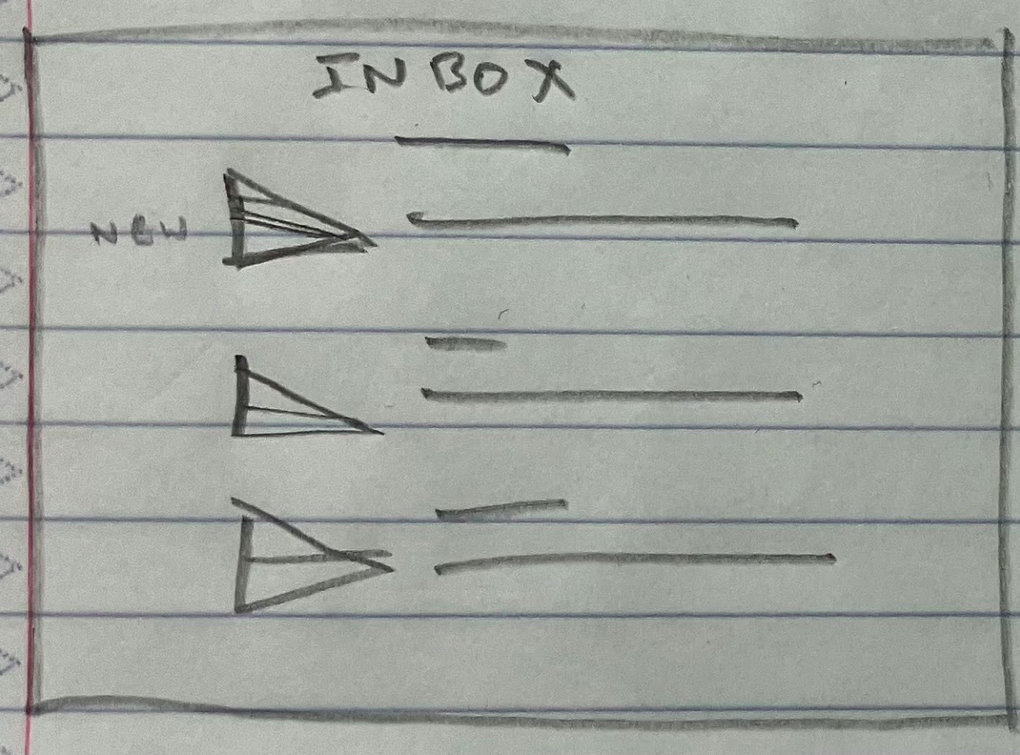 INBOX
NEW